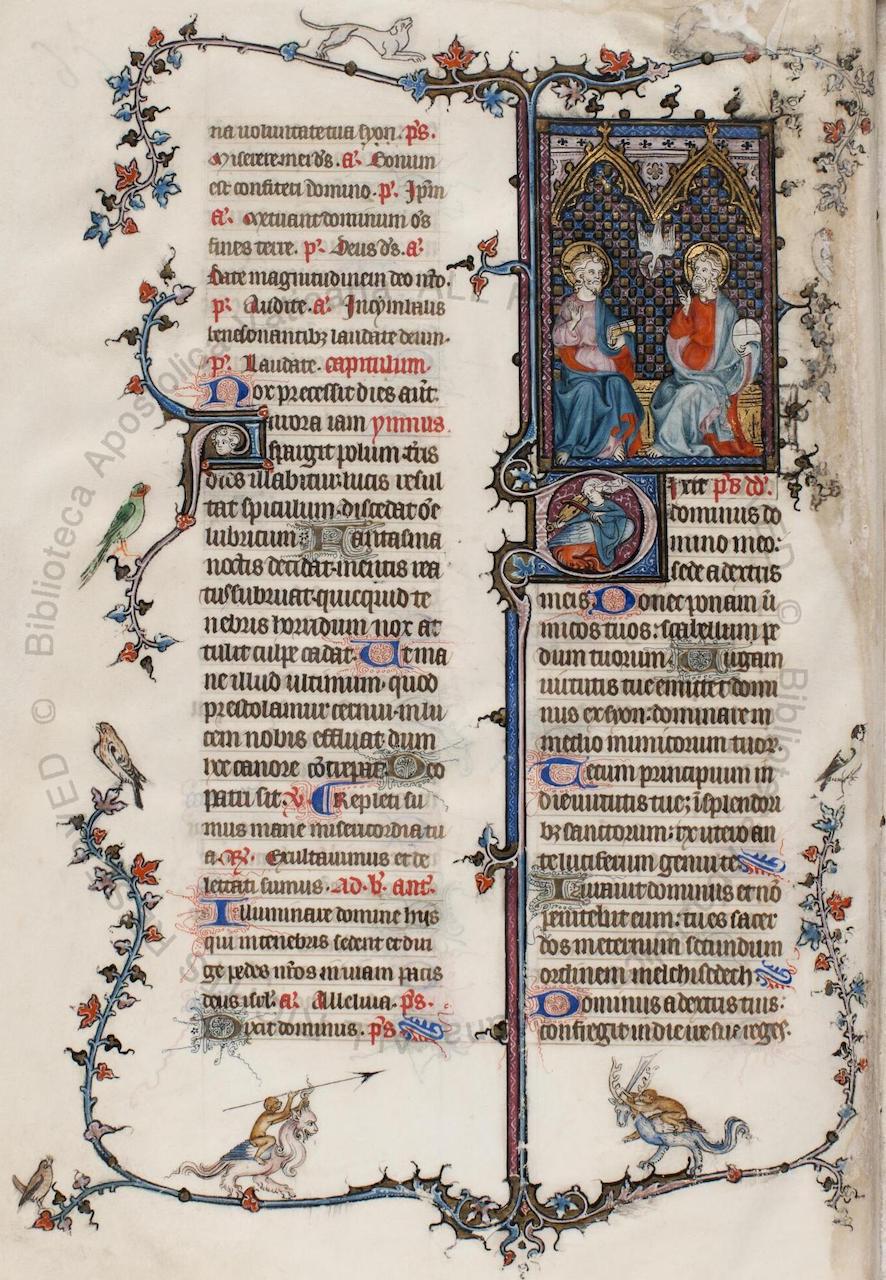 na uoluntate tua syon. ps.
Miserere mei ds. a. Bonum
est confiteri domino. p. Ipm
a. Metuant dominum os
fines terre. p. Deus ds. a.
Date magnitudinem deo nro.
p. Audite. a. In cymbalis
benesonantibz laudate deum.
p. Laudate. capitulum.
Nox precessit dies aut
ivora iam ymnus.
Aspargit polum tris
dies illabitur lucis resul
tat spiculum. discedat oe
lubricum Fantasma
noctis decidat. mentis rea
tus subruat. quicquid te
nebris horridum nox at
tulit culpe cadat. Ut ma
ne illud ultimum. quod
prestolamur cernui. in lu
cem nobis effluat dum
hec canore cocrepat. Deo
patri sit. V. Repleti su
mus mane misericordia tu
a. R. Exultauimus et de
lectati sumus. ad. b. ant.
Illuminare domine hijs
qui in tenebris sedent et diri
ge pedes nros in uiam pacis
deus isrl. a. Alleluia. ps.
Dixit dominus. ps
Dixit ps dd.
dominus do
mino meo:
sede a dextris
meis Donec ponam ini
micos tuos: scabellum pe
dum tuorum. Uirgam
uirtutis tue emittet domi
nus ex syon: dominare in
medio inimicorum tuor.
Tecum principium in
die uirtutis tue; i splendori
bz sanctorum: ex utero an
te luciferum genui te
Iurauit dominus et no
penitebit eum: tu es sacer
dos in eternum secundum
ordinem melchisedech
Dominus a dextris tuis:
confregit in die ire sue reges.
© Biblioteca Apostolica Vaticana